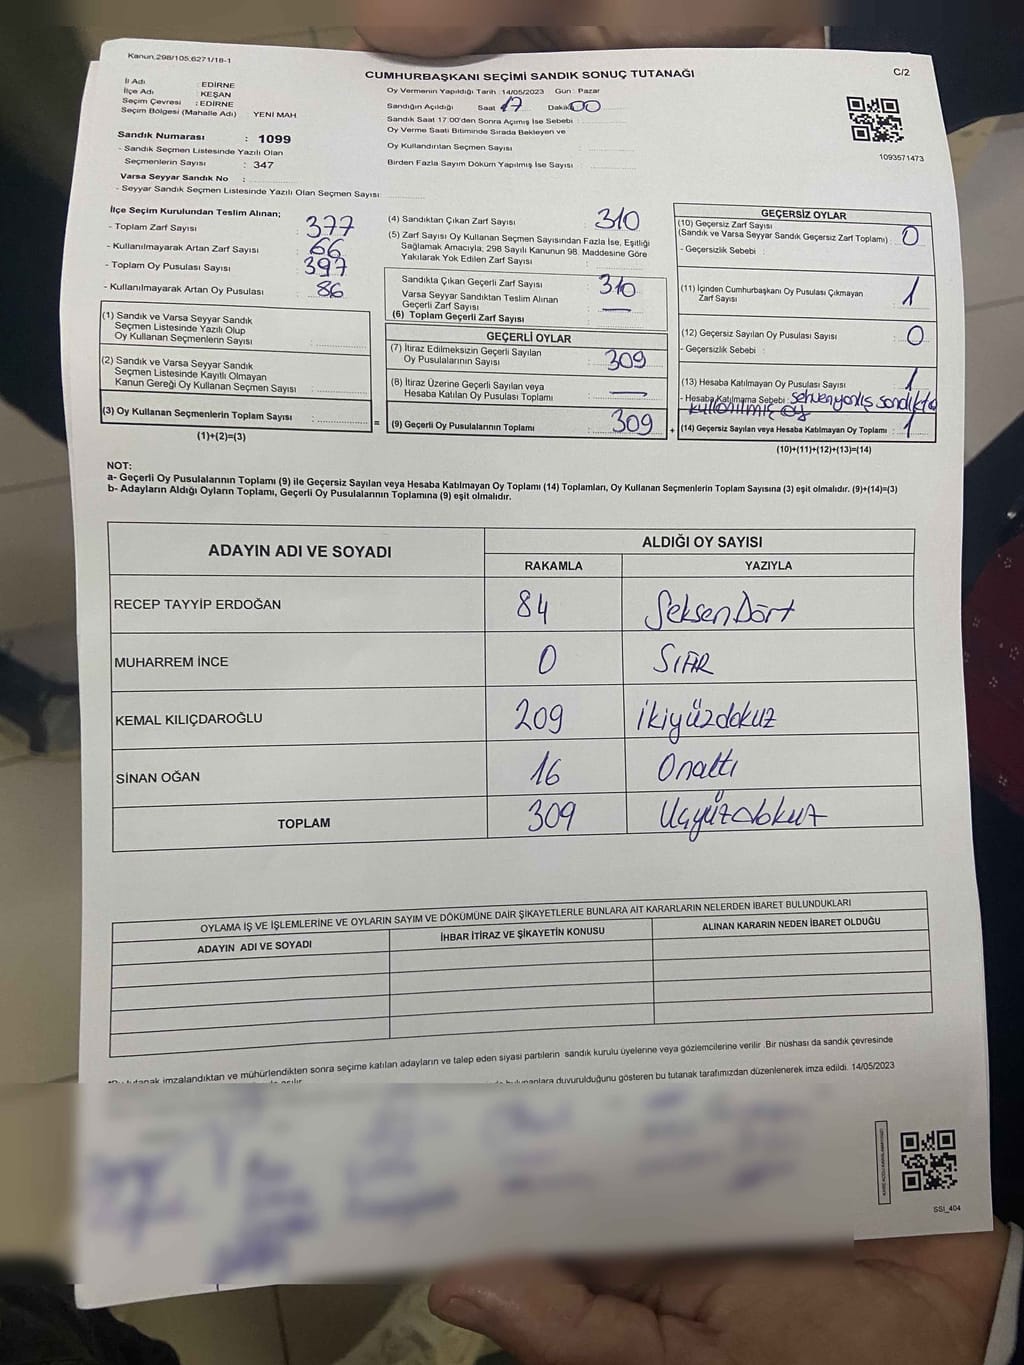 Kanun.298/105.6271/18-1
CUMHURBAŞKANI SEÇİMİ SANDIK SONUÇ TUTANAĞI
C/2
İl Adı : EDİRNE
İlçe Adı : KEŞAN
Seçim Çevresi : EDİRNE
Seçim Bölgesi (Mahalle Adı) YENİ MAH
Sandık Numarası : 1099
- Sandık Seçmen Listesinde Yazılı Olan
Seçmenlerin Sayısı : 347
Varsa Seyyar Sandık No :
- Seyyar Sandık Seçmen Listesinde Yazılı Olan Seçmen Sayısı
Oy Vermenin Yapıldığı Tarih : 14/05/2023 Gün : Pazar
Sandığın Açıldığı Saat 17 Dakika 00
Sandık Saat 17:00'den Sonra Açımış İse Sebebi :
Oy Verme Saati Bitiminde Sırada Bekleyen ve
Oy Kullandırılan Seçmen Sayısı :
Birden Fazla Sayım Döküm Yapılmış İse Sayısı :
1093571473
İlçe Seçim Kurulundan Teslim Alınan;
- Toplam Zarf Sayısı : 377
- Kullanılmayarak Artan Zarf Sayısı : 66
- Toplam Oy Pusulası Sayısı : 397
- Kullanılmayarak Artan Oy Pusulası : 86
(1) Sandık ve Varsa Seyyar Sandık
Seçmen Listesinde Yazılı Olup
Oy Kullanan Seçmenlerin Sayısı :
(2) Sandık ve Varsa Seyyar Sandık
Seçmen Listesinde Kayıtlı Olmayan
Kanun Gereği Oy Kullanan Seçmen Sayısı :
(3) Oy Kullanan Seçmenlerin Toplam Sayısı :
(1)+(2)=(3)
=
(4) Sandıktan Çıkan Zarf Sayısı : 310
(5) Zarf Sayısı Oy Kullanan Seçmen Sayısından Fazla İse, Eşitliği
Sağlamak Amacıyla; 298 Sayılı Kanunun 98. Maddesine Göre
Yakılarak Yok Edilen Zarf Sayısı :
Sandıkta Çıkan Geçerli Zarf Sayısı : 310
Varsa Seyyar Sandıktan Teslim Alınan
Geçerli Zarf Sayısı : —
(6) Toplam Geçerli Zarf Sayısı :
GEÇERLİ OYLAR
(7) İtiraz Edilmeksizin Geçerli Sayılan
Oy Pusulalarının Sayısı : 309
(8) İtiraz Üzerine Geçerli Sayılan veya
Hesaba Katılan Oy Pusulası Toplamı : —
(9) Geçerli Oy Pusulalarının Toplamı : 309
+
GEÇERSİZ OYLAR
(10) Geçersiz Zarf Sayısı
(Sandık ve Varsa Seyyar Sandık Geçersiz Zarf Toplamı) : 0
- Geçersizlik Sebebi :
(11) İçinden Cumhurbaşkanı Oy Pusulası Çıkmayan
Zarf Sayısı : 1
(12) Geçersiz Sayılan Oy Pusulası Sayısı : 0
- Geçersizlik Sebebi :
(13) Hesaba Katılmayan Oy Pusulası Sayısı : 1
- Hesaba Katılmama Sebebi : Sehven yanlış sandıkta
kullanılmış oy
(14) Geçersiz Sayılan veya Hesaba Katılmayan Oy Toplamı : 1
(10)+(11)+(12)+(13)=(14)
NOT:
a- Geçerli Oy Pusulalarının Toplamı (9) ile Geçersiz Sayılan veya Hesaba Katılmayan Oy Toplamı (14) Toplamları, Oy Kullanan Seçmenlerin Toplam Sayısına (3) eşit olmalıdır. (9)+(14)=(3)
b- Adayların Aldığı Oyların Toplamı, Geçerli Oy Pusulalarının Toplamına (9) eşit olmalıdır.
ADAYIN ADI VE SOYADI
ALDIĞI OY SAYISI
RAKAMLA YAZIYLA
RECEP TAYYİP ERDOĞAN 84 SeksenDört
MUHARREM İNCE 0 SIFIR
KEMAL KILIÇDAROĞLU 209 ikiyüzdokuz
SİNAN OĞAN 16 Onaltı
TOPLAM 309 Üçyüzdokuz
OYLAMA İŞ VE İŞLEMLERİNE VE OYLARIN SAYIM VE DÖKÜMÜNE DAİR ŞİKAYETLERLE BUNLARA AİT KARARLARIN NELERDEN İBARET BULUNDUKLARI
ADAYIN ADI VE SOYADI İHBAR İTİRAZ VE ŞİKAYETİN KONUSU ALINAN KARARIN NEDEN İBARET OLDUĞU
tutanak imzalandıktan ve mühürlendikten sonra seçime katılan adayların ve talep eden siyasi partilerin sandık kurulu üyelerine veya gözlemcilerine verilir .Bir nüshası da sandık çevresinde
duyurulduğunu gösteren bu tutanak tarafımızdan düzenlenerek imza edildi. 14/05/2023
SSI_404